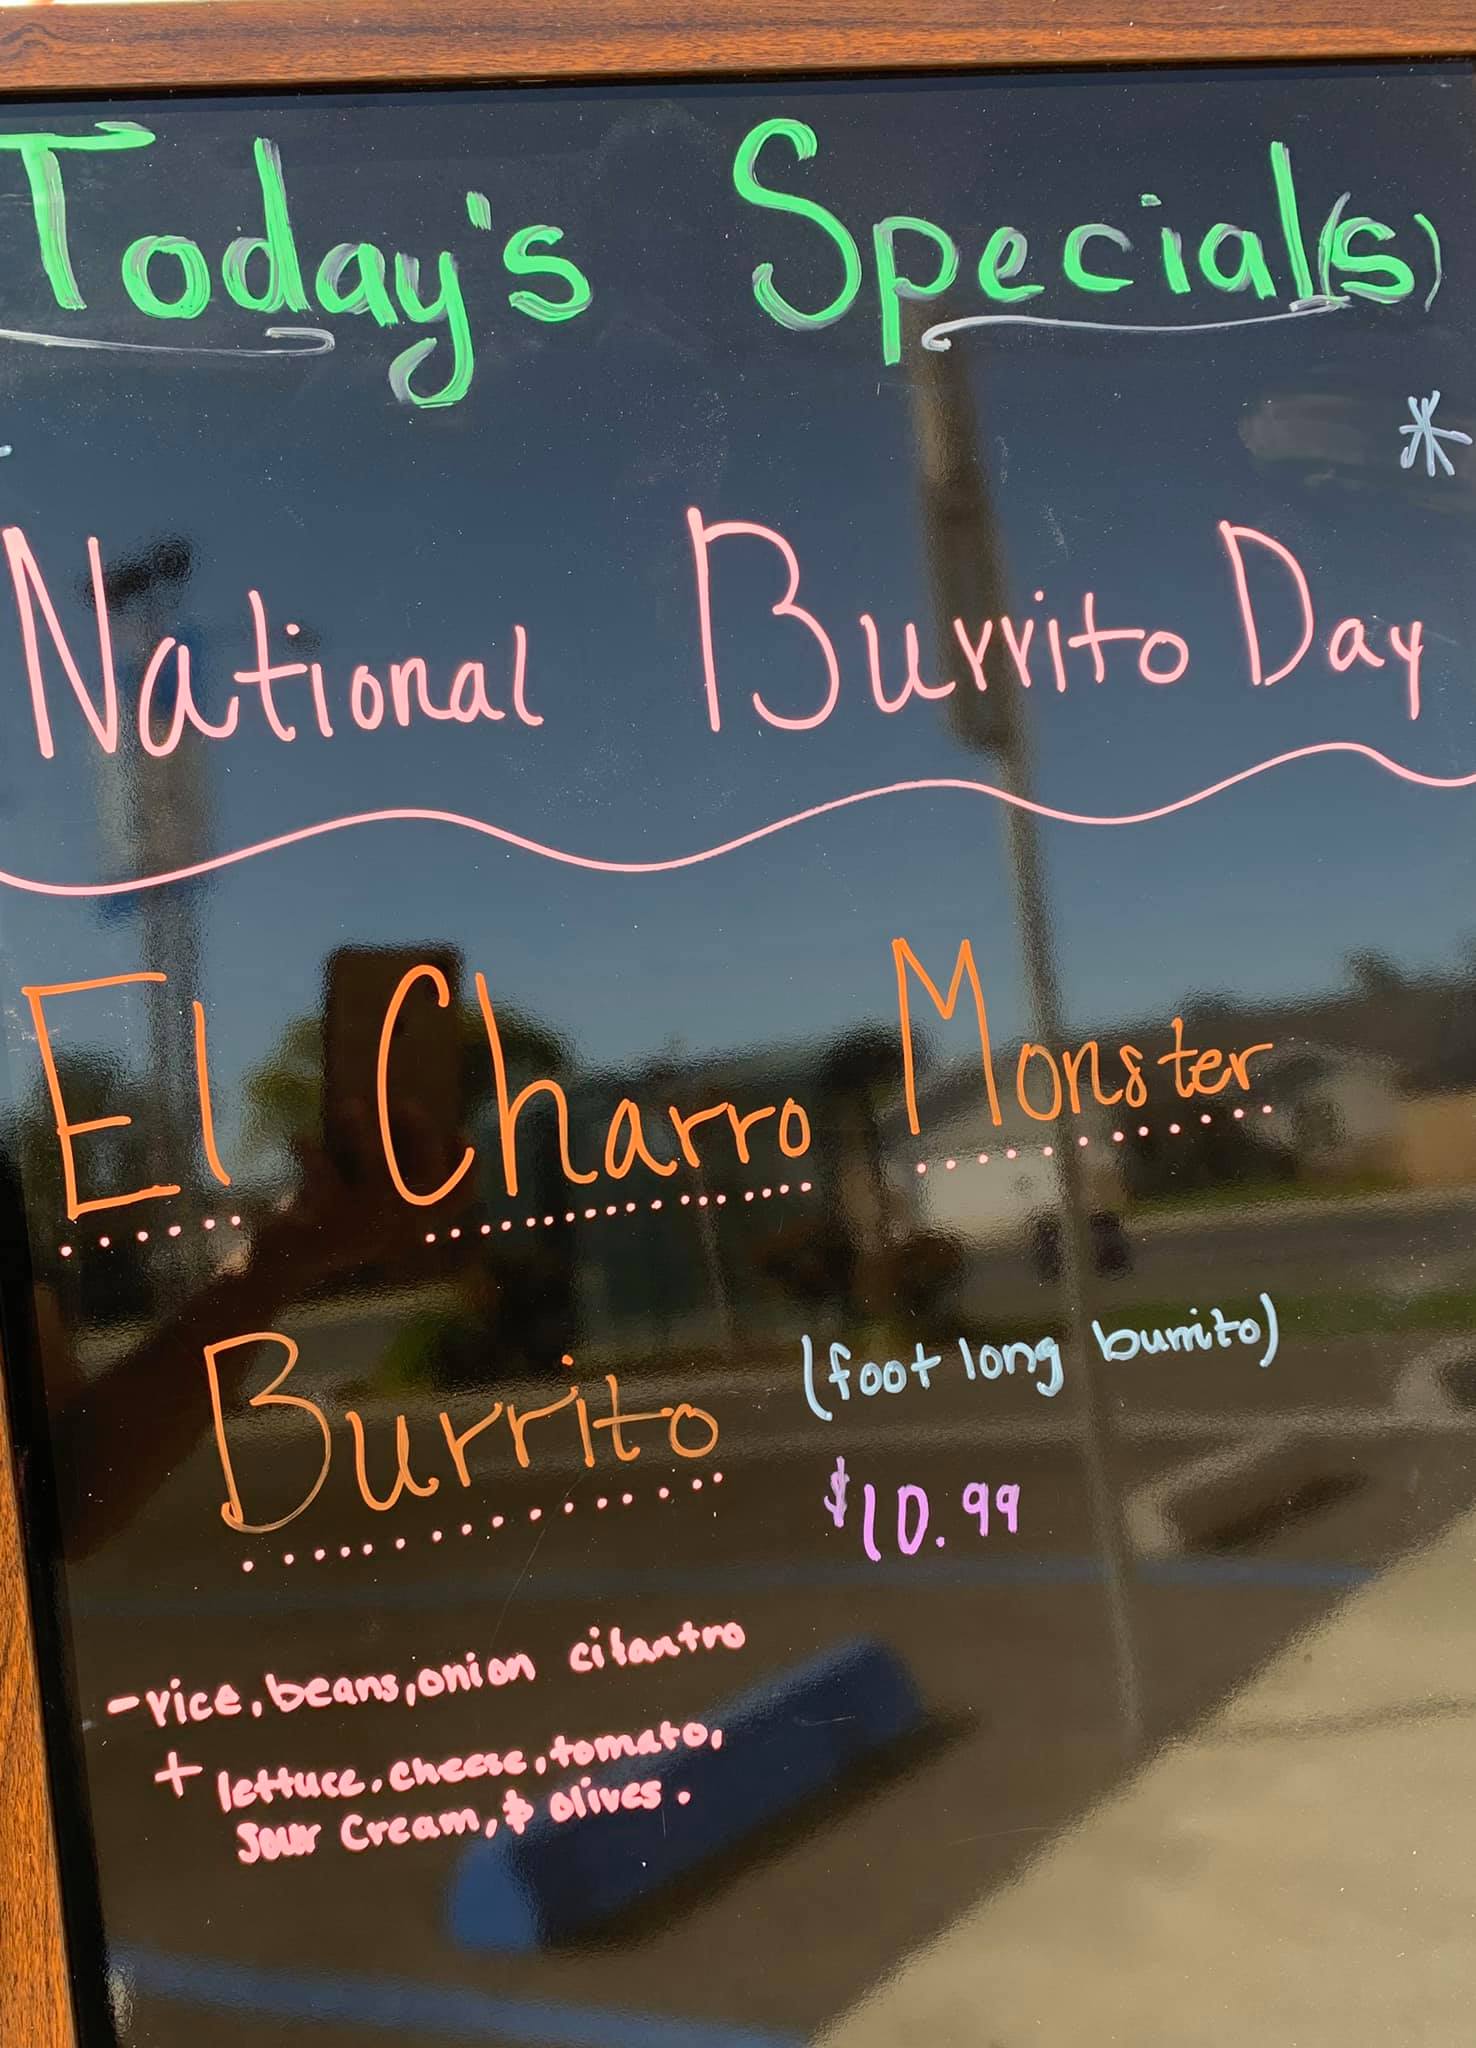 Today's Special(s)
*
National Burrito Day
El Charro Monster
Burrito (foot long burrito)
$10.99
- rice, beans, onion cilantro
+ lettuce, cheese, tomato,
sour cream, & olives.